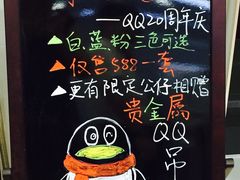 ——QQ20周年庆
▲白.蓝.粉 三色可选
▲仅售588一套
▲更有限定公仔相赠
贵金属
QQ
吊